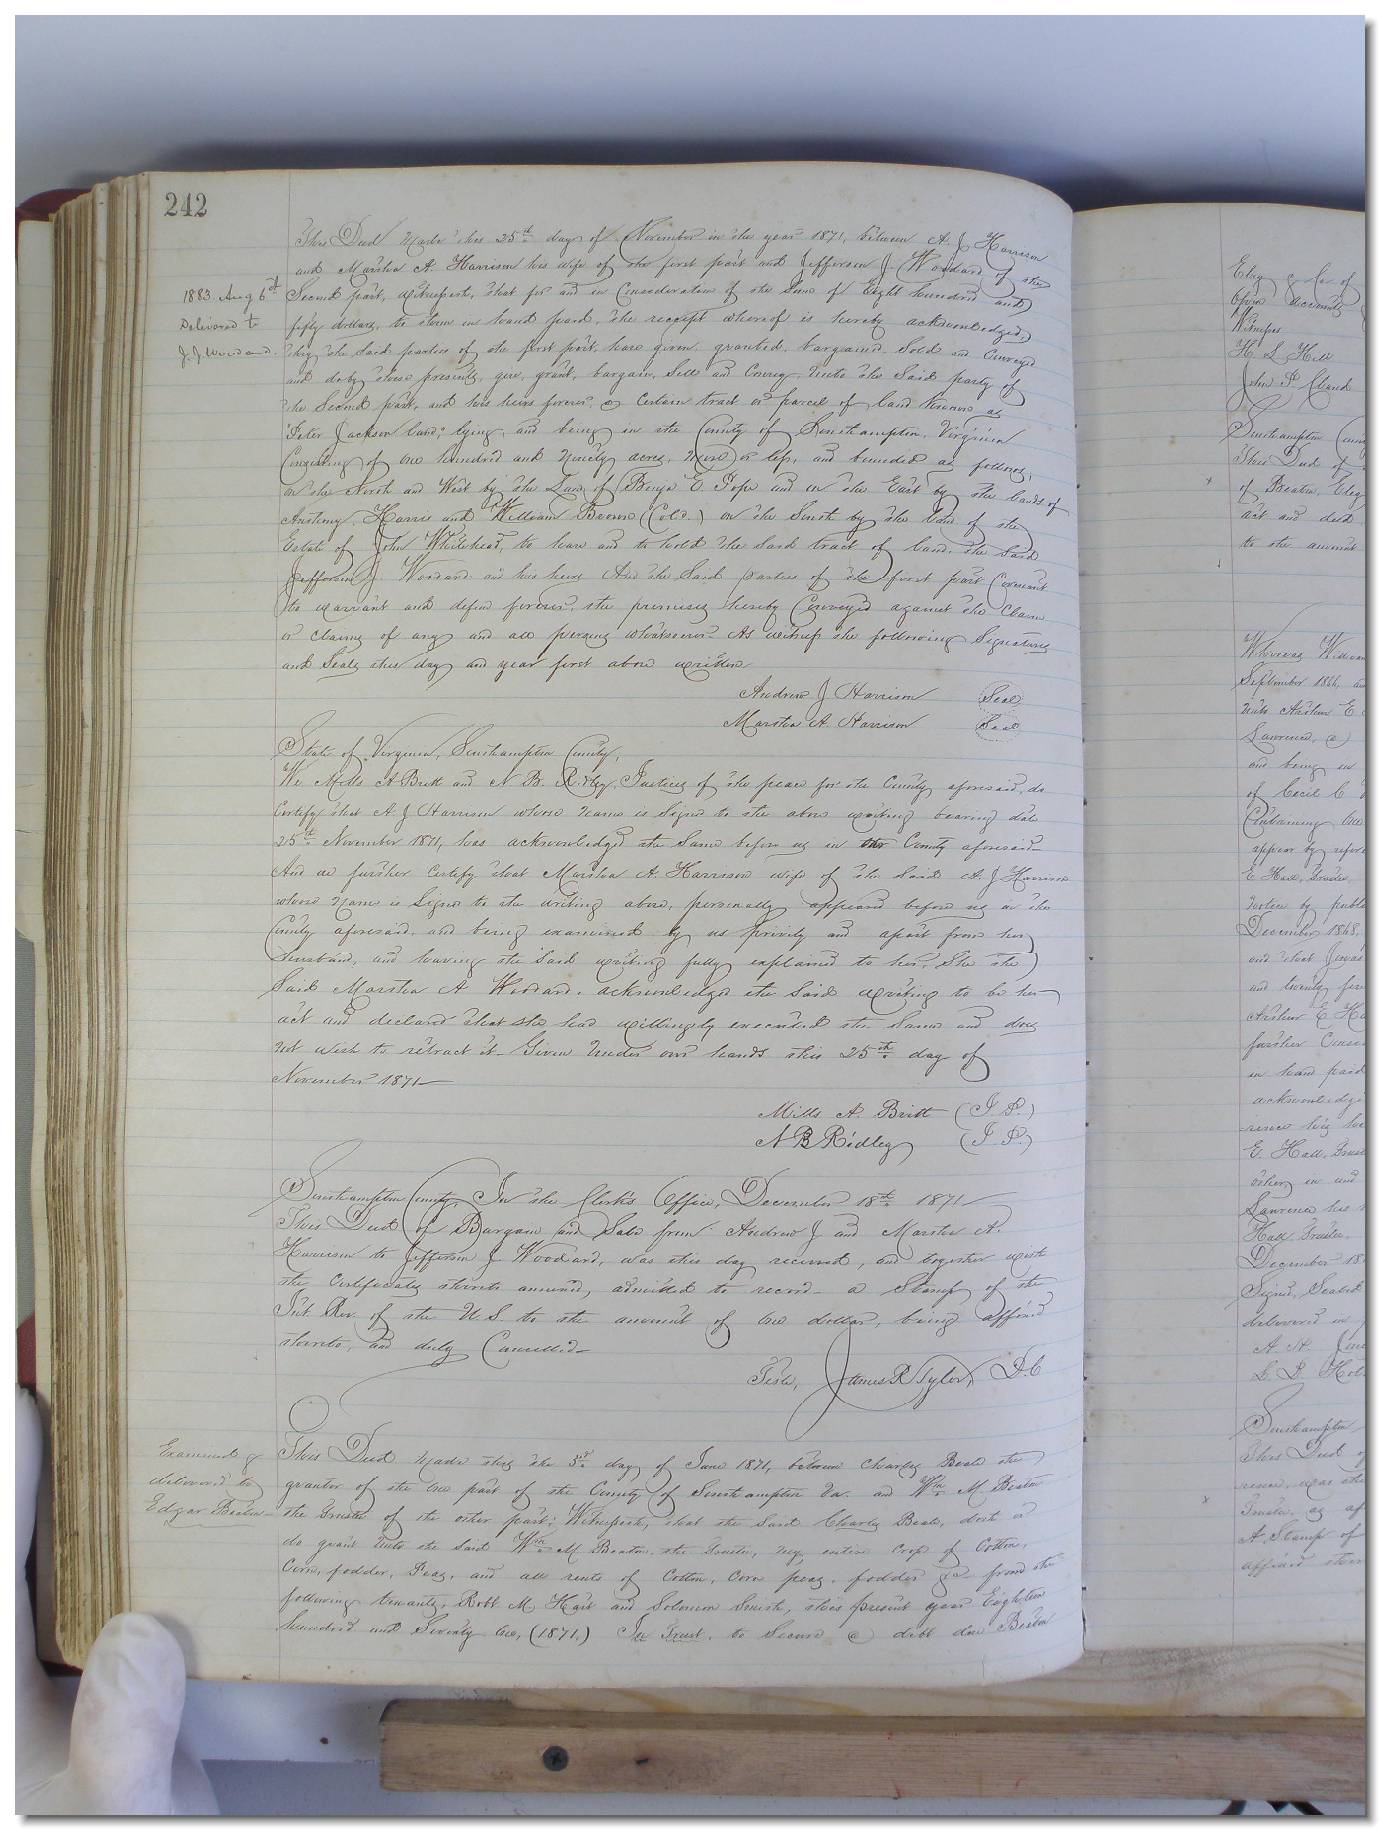 242
This Deed made this 25th day of November in the year 1871, between A. J Harrison
and Marsha A. Harrison his wife of the first part and Jefferson J. Woodard of the
1883. Aug 6th
Delivered to
J. J. Woodard.
Second part, witnesseth, that for and in Consideration of the Sum of Eight hundred and
fifty dollars, to them in hand paid, the receipt whereof is hereby acknowledged,
they the Said parties of the first part, have given, granted, bargained, Sold and Conveyed
and do by these presents, give, grant, bargain, Sell and Convey, unto the Said party of
the Second part, and his heirs forever, a Certain tract or parcel of land known as
"Peter Jackson land," lying, and being in the County of Southampton, Virginia
Consisting of one hundred and ninety acres, more or less, and bounded as follows,
on the North and West by the Land of Benja E. Pope and on the East by the lands of
Anthony Harris and William Brown (Cold.) on the South by the land of the
Estate of John Whitehead, to have and to hold the Said tract of land, the Said
Jefferson J. Woodard and his heirs And the Said parties of the first part Covenant
to warrant and defend forever, the premises hereby Conveyed against the Claim
or Claims of any and all persons whatsoever. As witness the following Signatures
and Seals this day and year first above written
Andrew J Harrison Seal
Marsha A. Harrison Seal
State of Virginia, Southampton County,
We Mills A Britt and N B. Ridley, Justices of the peace for the County aforesaid, do
Certify that A. J Harrison whose name is Signed to the above writing bearing date
25th November 1871, has acknowledged the Same before us in the County aforesaid
And we further Certify that Marsha A. Harrison wife of the Said A. J Harrison
whose name is Signed to the writing above, personally appeared before us in the
County aforesaid, and being examined by us privily and apart from her
husband, and having the Said writing fully explained to her, She the
Said Marsha A Woodard, acknowledged the Said writing to be her
act and declared that She had willingly executed the Same and does
not wish to retract it. Given under our hands this 25th day of
November 1871
Mills A. Britt (J. P.)
N B Ridley (J. P.)
Southampton County, In the Clerk's Office, December 18th 1871
This Deed of Bargain and Sale from Andrew J and Marsha A.
Harrison to Jefferson J Woodard, was this day received, and together with
the Certificates thereto annexed, admitted to record a Stamp of the
Int Rev. of the U. S. to the amount of one dollar, being affixed
thereto, and duly Cancelled
Teste, James R Tyler, D. C
Examined &
delivered to
Edgar Beaton
This Deed made this the 3rd day of June 1871, between Charles Beale the
grantor of the one part of the County of Southampton Va. and Wm M Beaton
the Trustee of the other part; Witnesseth, that the Said Charles Beale, doth &
do grant unto the Said Wm M Beaton, the Trustee, my entire Crop of Cotton,
Corn, fodder, Peas, and all rents of Cotton, Corn peas, fodder &c from the
following tenants, Robt M Hart and Solomon Smith, this present year Eighteen
hundred and Seventy One, (1871,) In Trust, to Secure a debt due Beaton
Upon accounts
Witness
H. L. Hall
Southampton Coun
This Deed of
of Beaton,
act and deed
to the amount
Whereas William
September 1866,
unto Arthur E
Lawrence, a
and being in
of Cecil C
Containing One
appear by refer
E Hall, Trustee,
notice by public
December 1868,
and that
and twenty five
Arthur E Ha
further
in hand paid
acknowledge
E. Hall, Trust
others in and
Lawrence his
Hall Trustee,
December 18
Signed, Sealed
delivered in
Southampton
This Deed of
Trustee, as
A Stamp of
affixed there